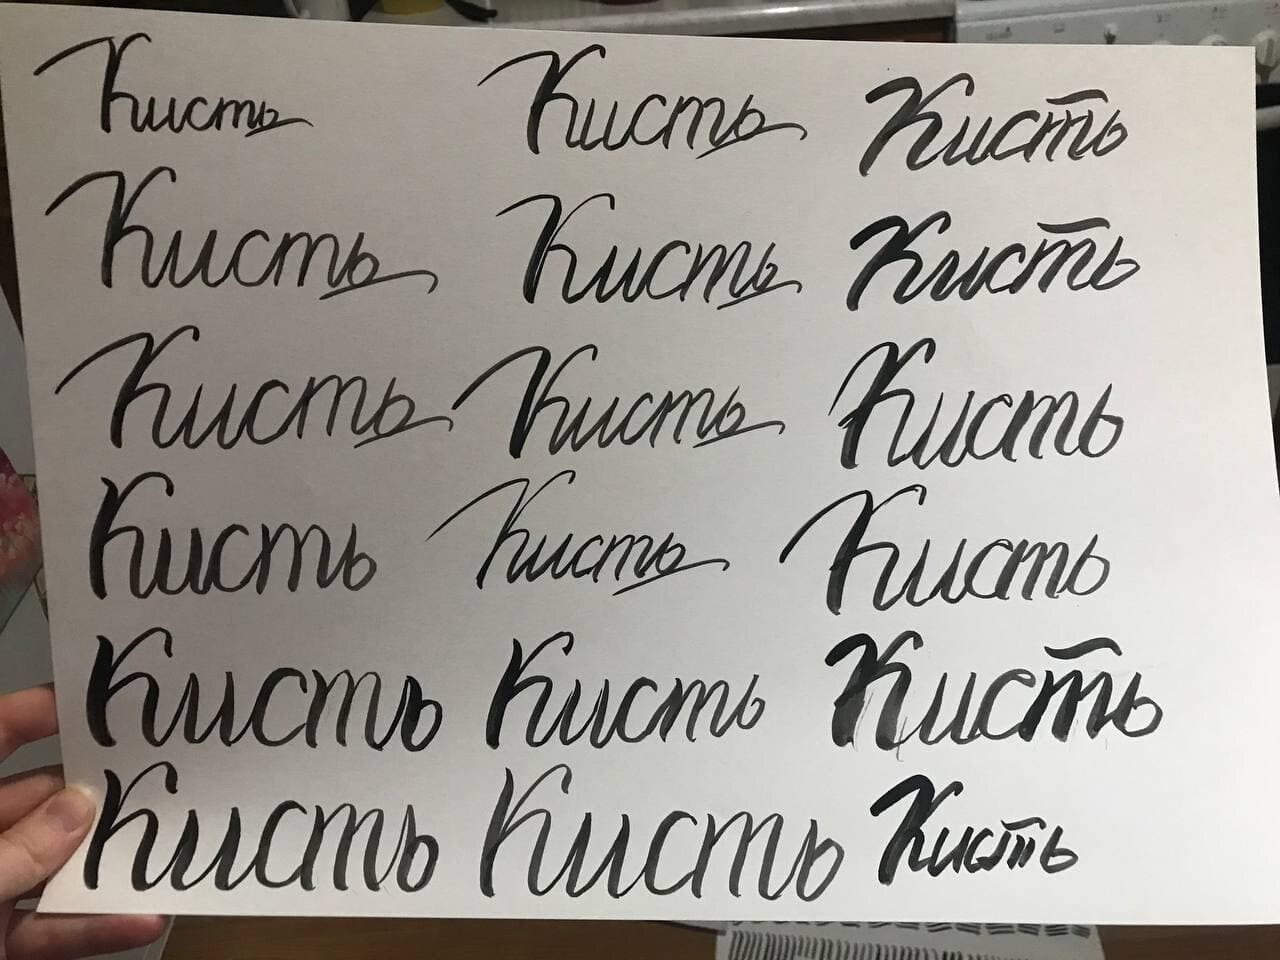 Кисть Кисть Кисть
Кисть Кисть Кисть
Кисть Кисть Кисть
Кисть Кисть Кисть
Кисть Кисть Кисть
Кисть Кисть Кисть